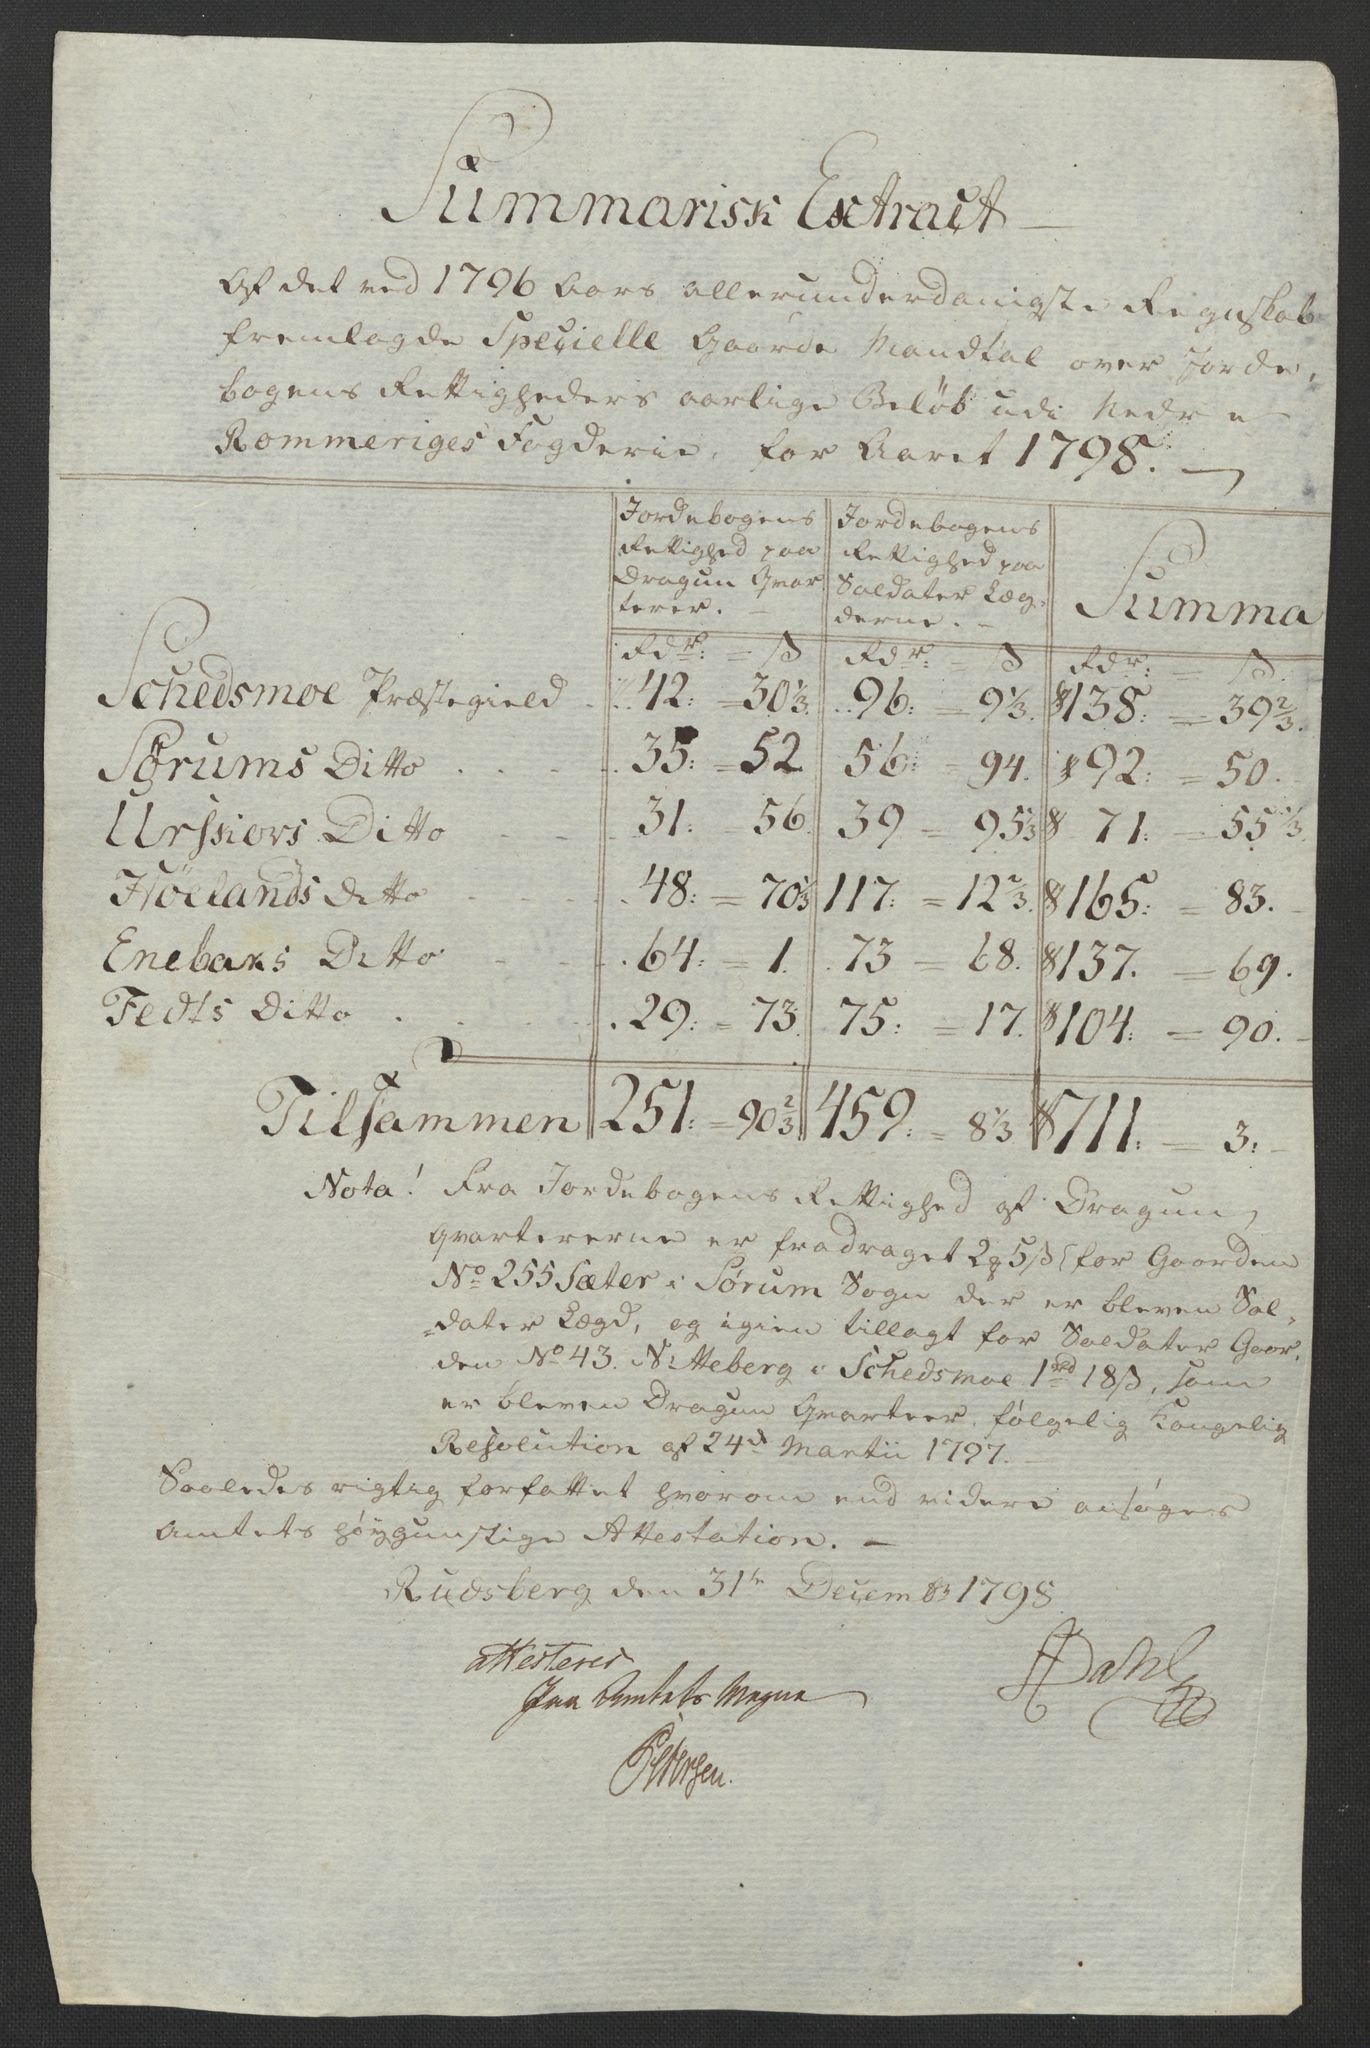 Summarisk Extract
Af det ved 1796 Aars allerunderdanigste Regnskab
fremlagde Specielle Gaarde Mandtal over Jorde,
bogens Rettigheders aarlige Beløb udi Nedre
Rommeriges Fogderie, for Aaret 1798.
Jordebogens Rettighed paa Dragun Qvarterer. Jordebogens Rettighed paa Soldater Lægderne. Summa
Rdr: = ß Rdr: = ß Rdr: = ß
Schedsmoe Præstegield 42: = 30 1/3. 96: = 9 1/3. 138: = 39 2/3.
Sørums Ditto 35: = 52. 56: = 94. 92: = 50.
Urskiors Ditto 31: 56. 39 = 95 1/3 71: = 55 1/3.
Höelands ditto 48: = 70 1/3 117: = 12 2/3. 165: = 83.
Enebaks Ditto 64: = 1. 73 = 68. 137. = 69.
Fedts Ditto 29: = 73. 75: = 17. 104: = 90.
Tilsammen 251: = 90 2/3 459: = 8 1/3 711: = 3:
Nota! Fra Jordebogens Rettighed af Dragun
qvartererne er fradraget 2 5ß for Gaarden
No 255 Sæter i Sørum Sogn der er bleven Sol,
dater Lægd, og igien tillagt for Soldater Gaar,
den No 43. Nitteberg i Schedsmoe 1rd 18ß, som
er bleven Dragun Qvarteer, følgelig Kongelig
Resolution af 24d Martii 1797.
Saaledes rigtig forfattet hvorom end videre ansøges
Amtets høygunstige Attestation.
Rudsberg den 31te Decembr 1798
attesteres
Paa Amtets Vegne
Dahl
Petersen.